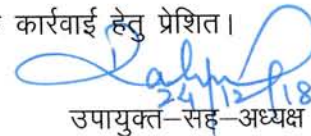 कार्रवाई हेतु प्रेशित।
24/12/18
उपायुक्त–सह–अध्यक्ष